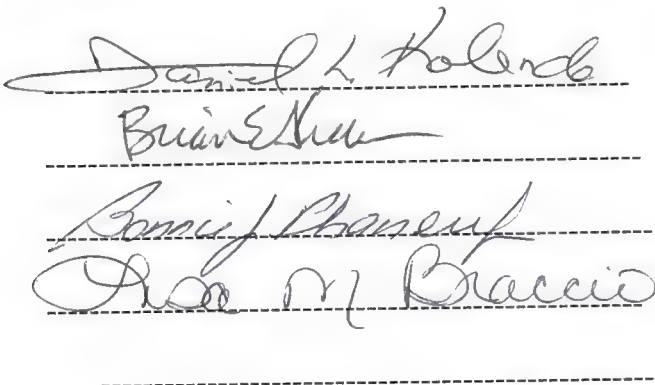 Daniel L. Kolenda
Brian E
Bonnie J Phaneuf
Lisa M Braccio